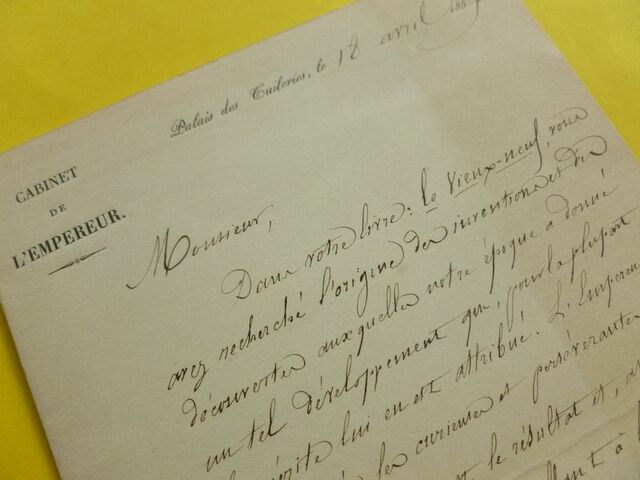 Palais des Tuileries, le 18 avril 186
CABINET
DE
L'EMPEREUR.
Monsieur,
Dans votre livre: le Vieux-neuf, vous
avez recherché l'origine des inventions et des
découvertes auxquelles notre époque a donné
un tel développement que, pour la plupart
le mérite lui en est attribué. L'Empereur
les curieuses et persévérantes
le résultat et, 
à